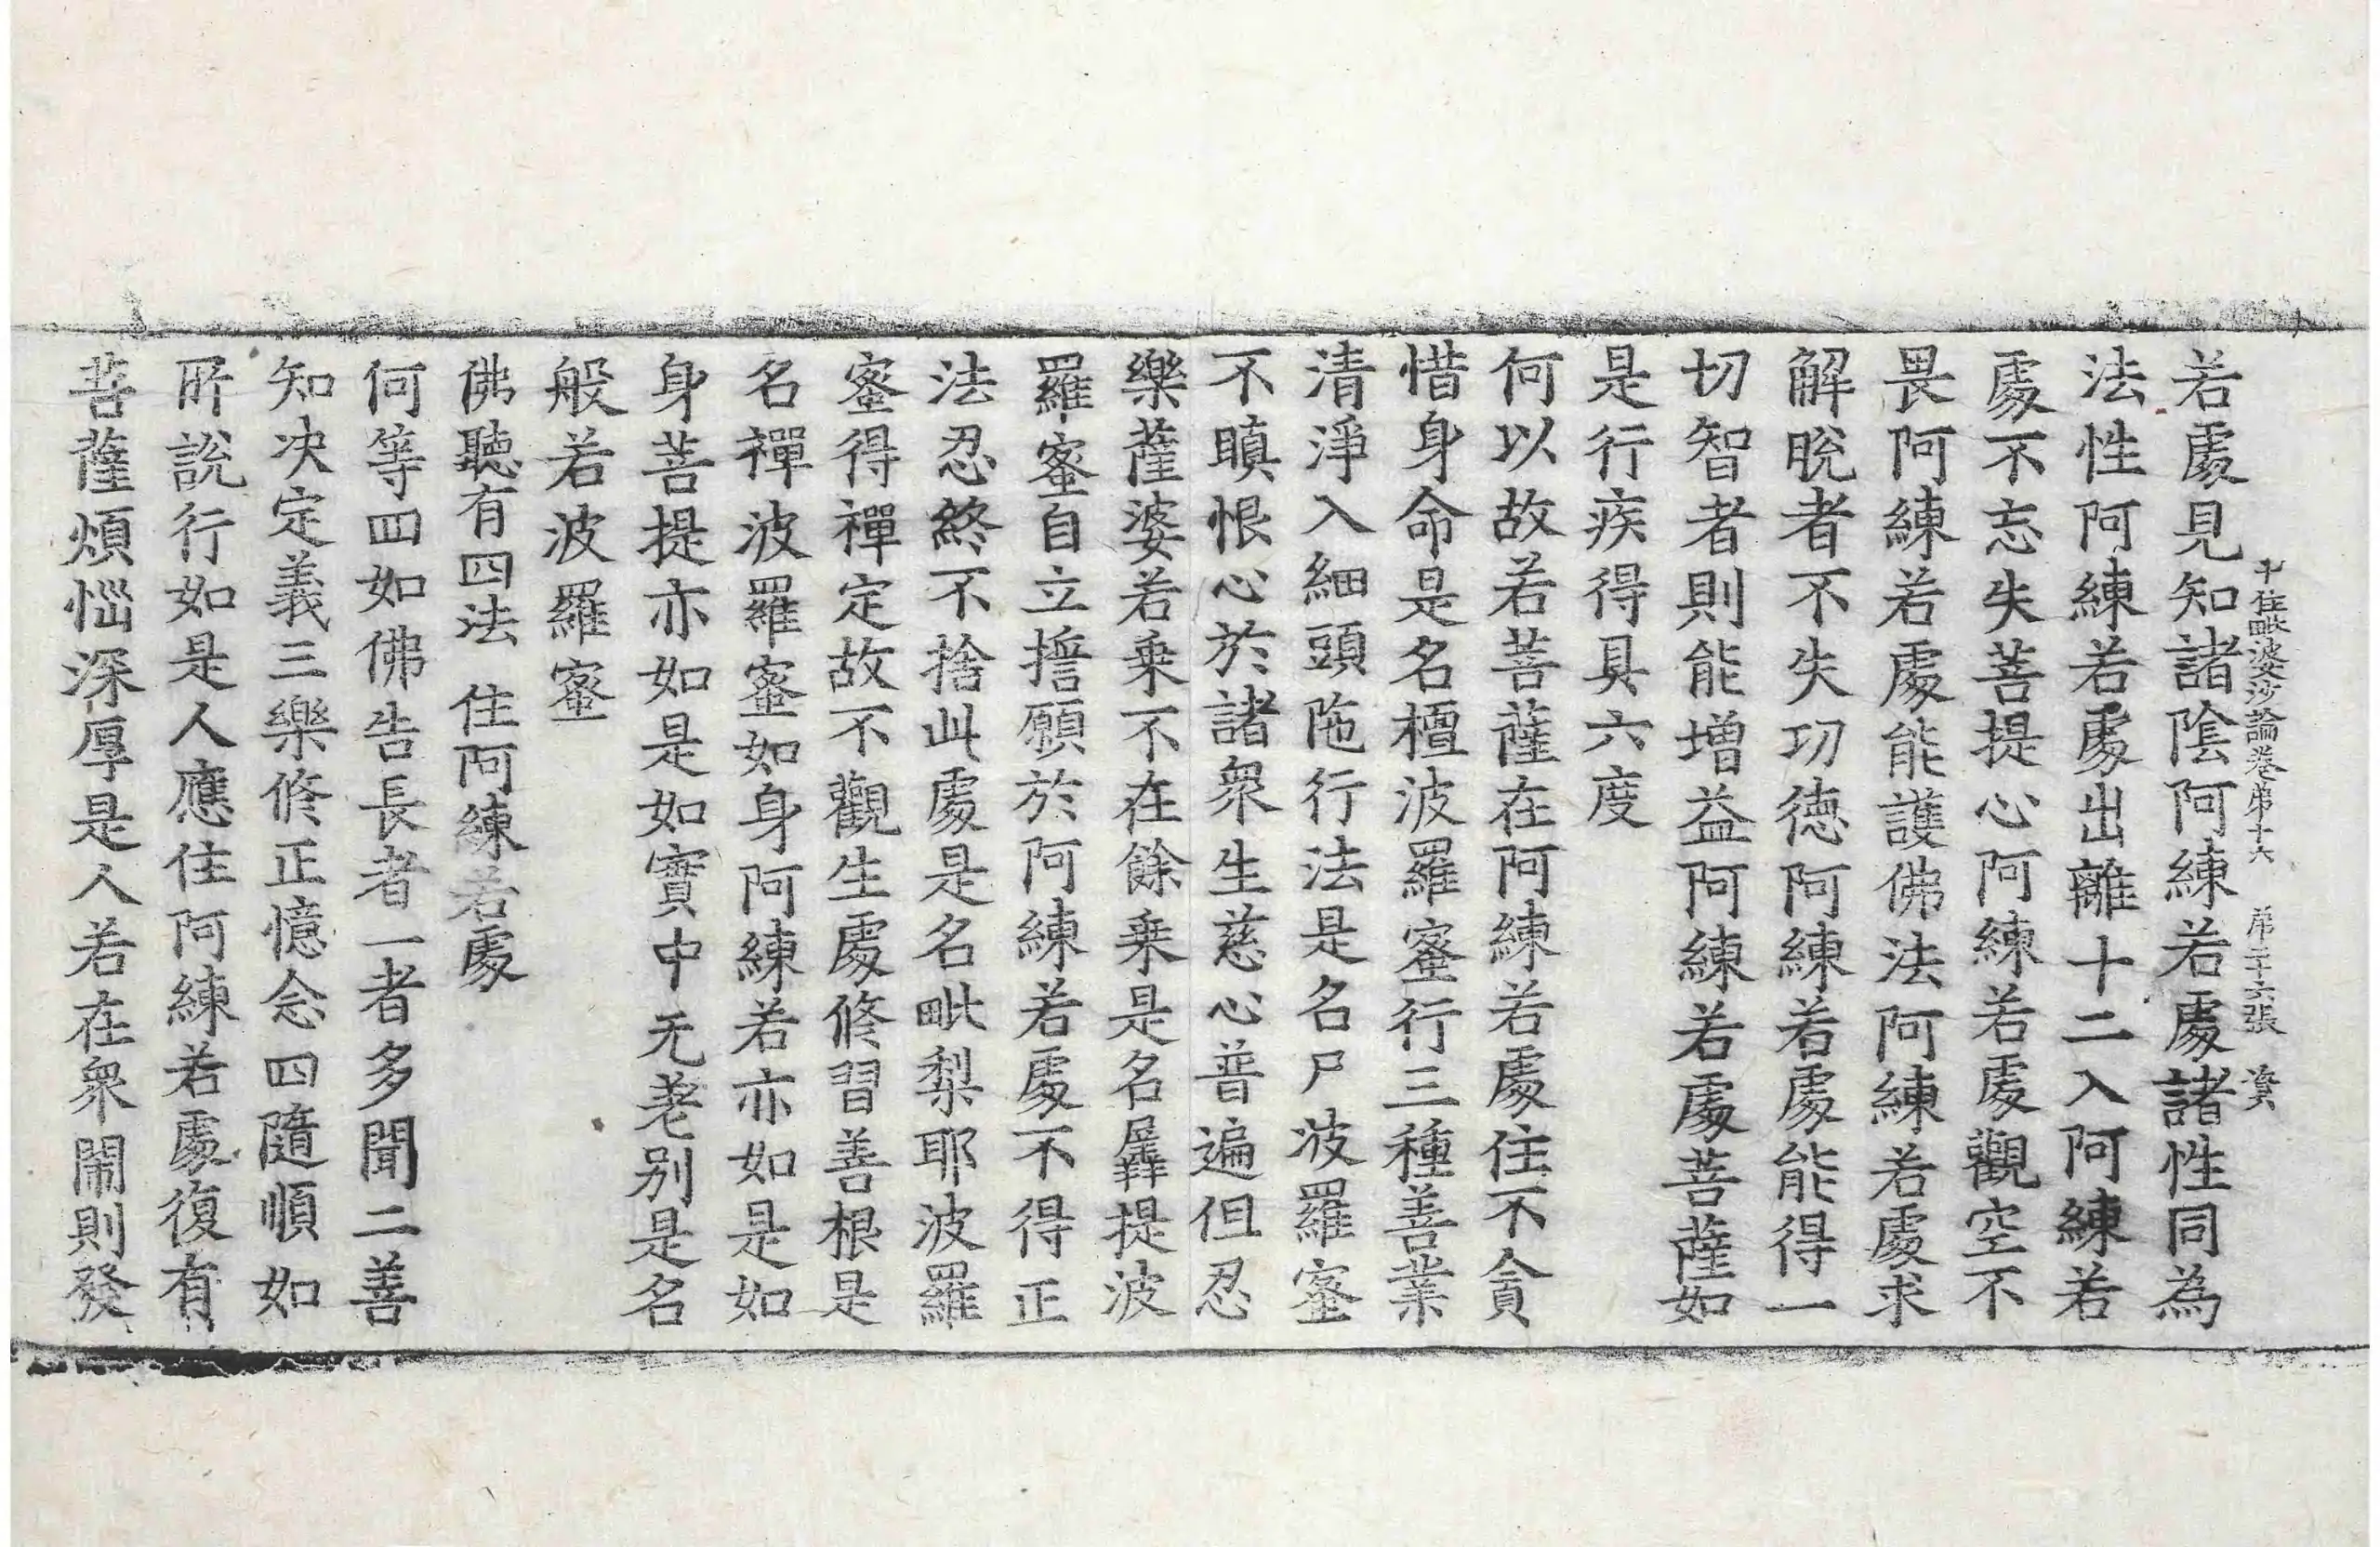 十住毗婆沙論卷第十六 第二十六張 資
若處見知諸陰阿練若處諸性同為
法性阿練若處出離十二入阿練若
處不忘失菩提心阿練若處觀空不
畏阿練若處能護佛法阿練若處求
解脫者不失功德阿練若處能得一
切智者則能增益阿練若處菩薩如
是行疾得具六度
何以故若菩薩在阿練若處住不貪
惜身命是名檀波羅蜜行三種善業
清淨入細頭陁行法是名尸波羅蜜
不瞋恨心於諸衆生慈心普遍但忍
樂薩婆若乗不在餘乗是名羼提波
羅蜜自立擔願於阿練若處不得正
法忍終不捨此處是名毗梨耶波羅
蜜得禪定故不觀生處修習善根是
名禪波羅蜜如身阿練若亦如是如
身菩提亦如是如實中无差别是名
般若波羅蜜
佛聽有四法 住阿練若處
何等四如佛告長者一者多聞二善
知决定義三樂修正憶念四隨順如
所說行如是人應住阿練若處復有
菩薩煩惱深厚是人若在衆閙則發